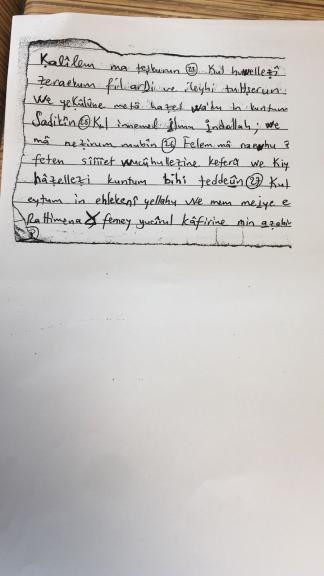 Kalîlem ma teşkurun (23) Kul huvellezî
zeraekum fil arDi ve ileyhi tuHşerun.
We yekûlûne metâ hazel wa'du in kuntum
Sadikîn (25) Kul innemel ilmu indallah; we
mâ nezirum mubîn (26) Felem mâ
feten sîîet wucûhullezine keferû we kiy
hâzellezi kuntum bihi teddeûn (27) Kul
eytum in ehlekenî yellahu we mem meiye e
RaHimena X femey yucîrul kâfirine min azabi